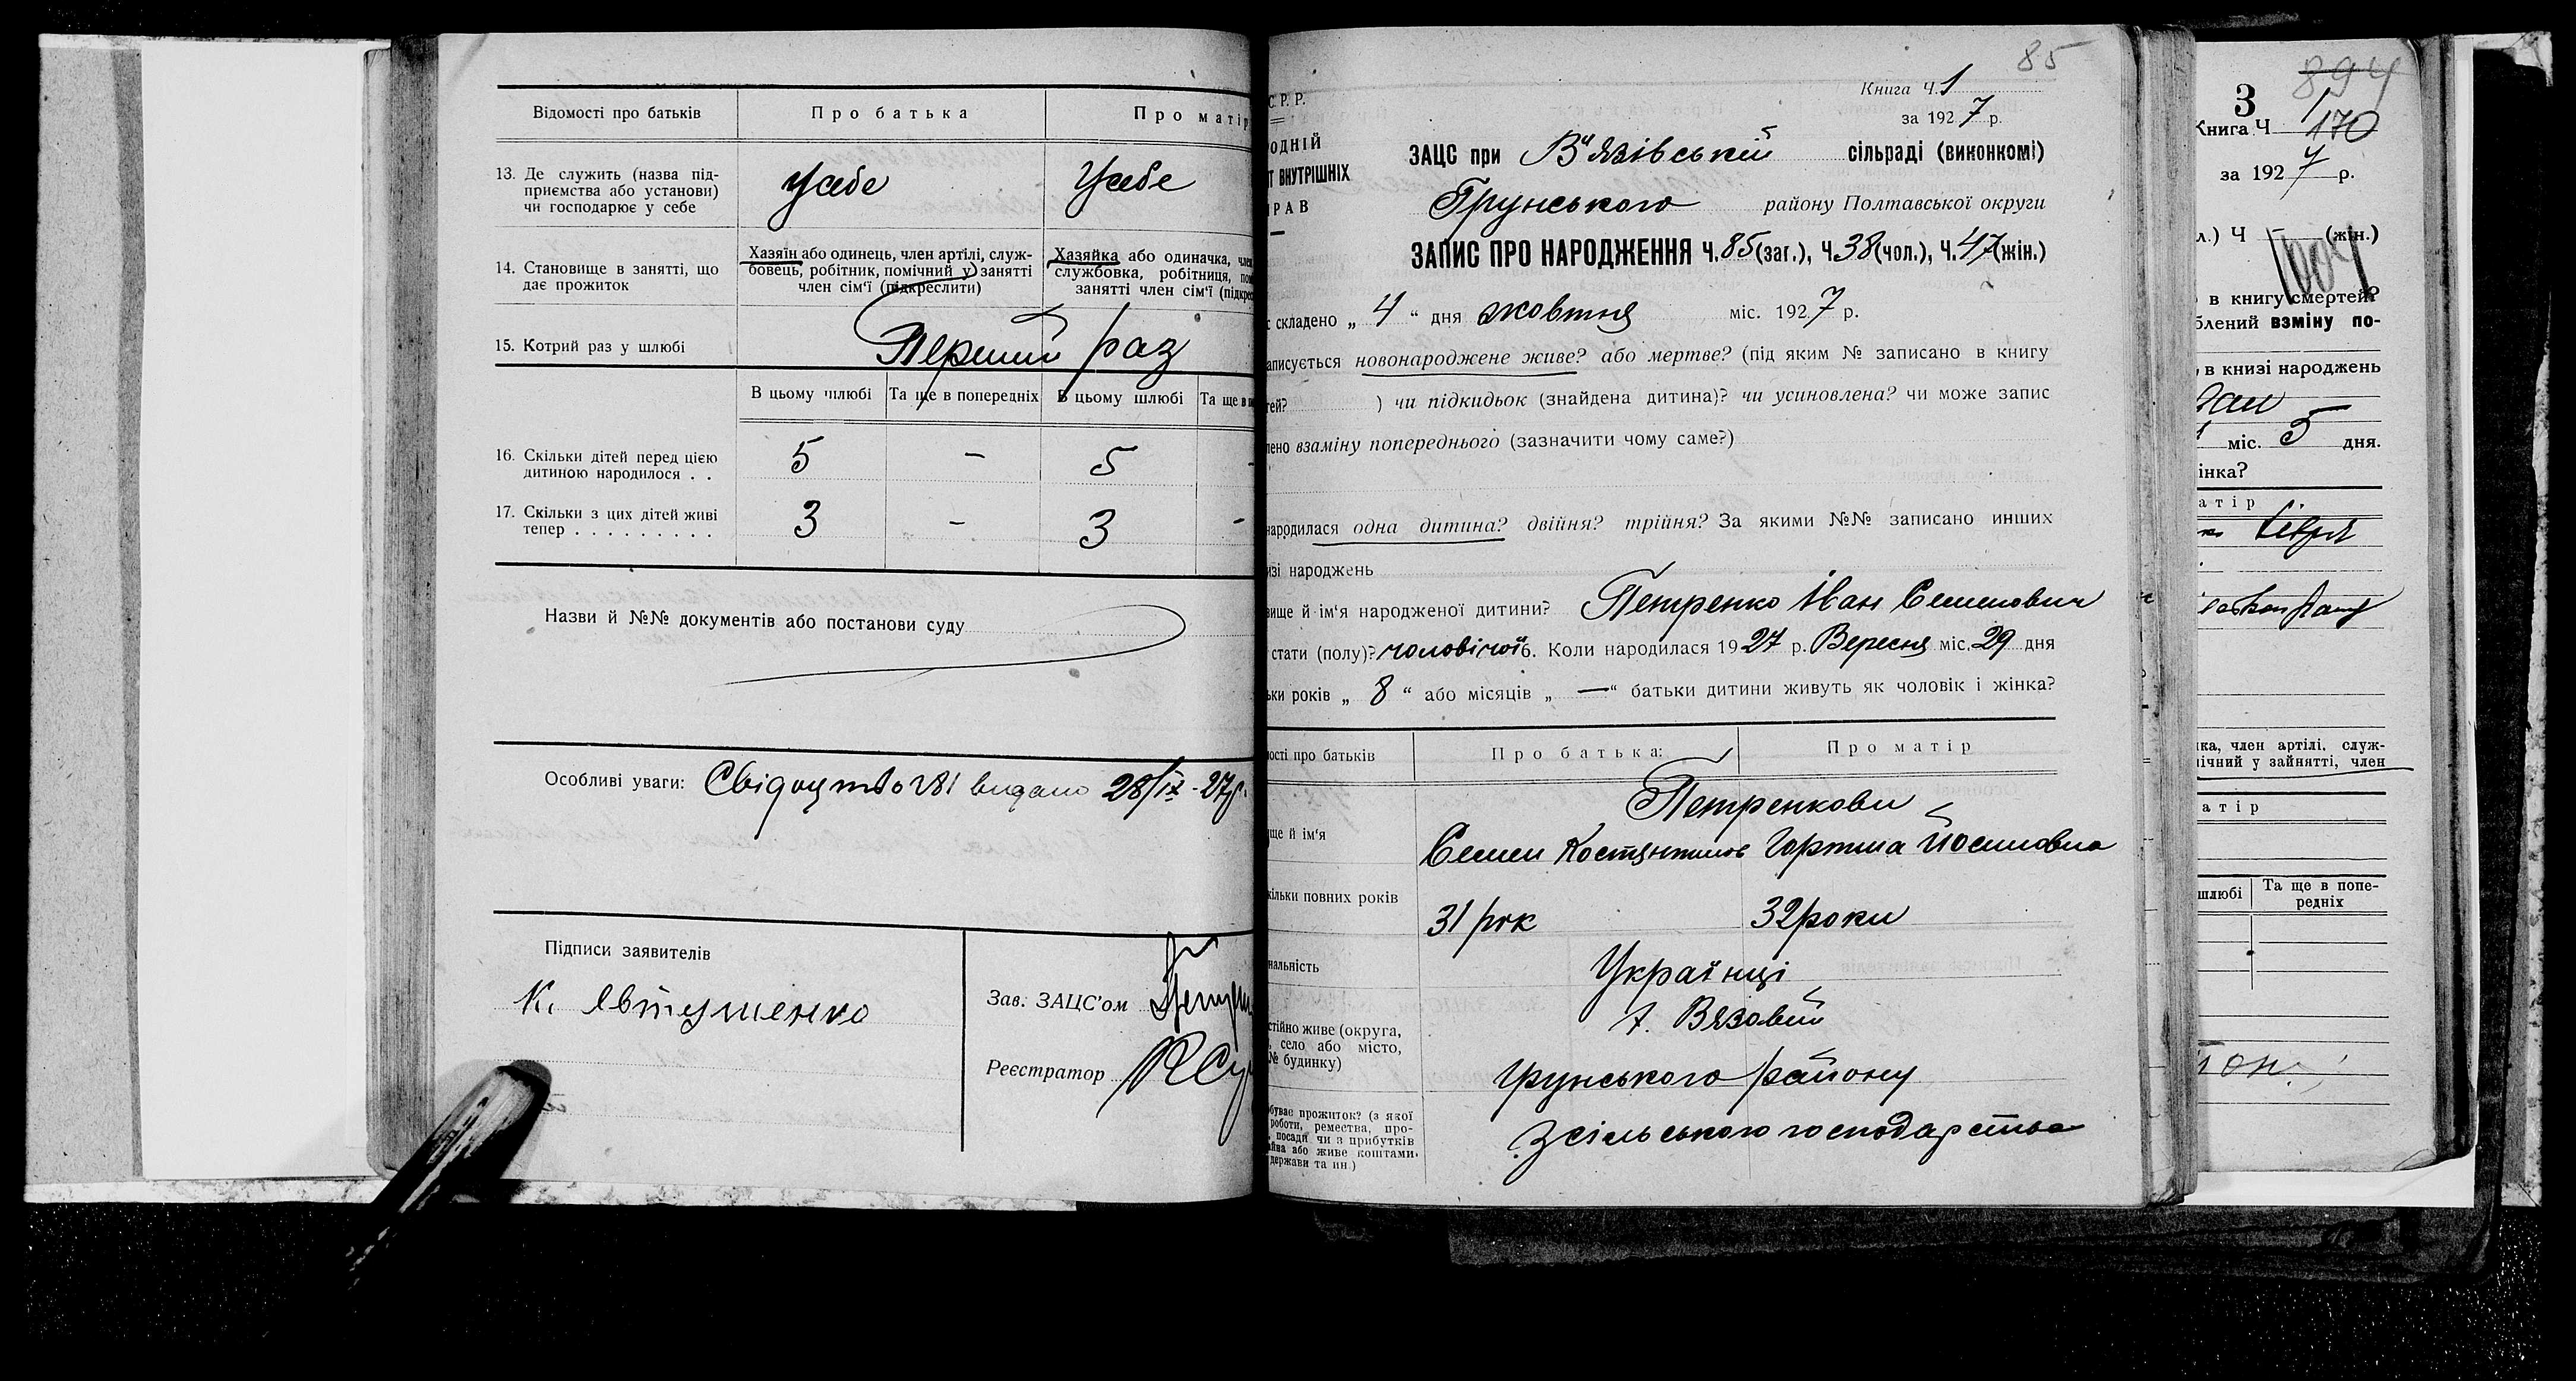 Відомості про батьків
Про батька
Про матір
13. Де служить (назва під-
приємства або установи)
чи господарює у себе
У себе
У себе
14. Становище в занятті, що
дає прожиток
Хазяїн або одинець, член артілі, служ-
бовець, робітник, помічний у занятті
член сім'ї (підкреслити)
Хазяйка або одиначка, член
службовка, робітниця, пом
занятті член сім'ї (підкрес
15. Котрий раз у шлюбі
Перший раз
В цьому шлюбі
Та ще в попередніх
В цьому шлюбі
Та ще в
16. Скільки дітей перед цією
дитиною народилося . .
5 - 5 -
17. Скільки з цих дітей живі
тепер . . . . . . . . .
3 - 3 -
Назви й №№ документів або постанови суду
Особливі уваги: Свідоцтво 781 видано 28/ІХ-27р.
Підписи заявителів
К. Явтушенко
Зав. ЗАЦС'ом
Реєстратор
85
С. Р. Р.
Книга Ч. 1
за 1927 р.
ОДНІЙ
Т ВНУТРІШНІХ
РАВ
ЗАЦС при В"язівській сільраді (виконкомі)
Грунського району Полтавської округи
ЗАПИС ПРО НАРОДЖЕННЯ Ч. 85 (заг.), Ч. 38 (чол.), Ч. 47 (жін.)
с складено „ 4 “ дня жовтня міс. 1927 р.
аписується новонароджене живе? або мертве? (під яким № записано в книгу
тей? ) чи підкидьок (знайдена дитина)? чи усиновлена? чи може запис
лено взаміну попереднього (зазначити чому саме?)
народилася одна дитина? двійня? трійня? За якими №№ записано инших
изі народжень
вище й ім'я народженої дитини? Петренко Іван Семенович
стати (полу)? чоловічої 6. Коли народилася 1927 р. Вересня міс. 29 дня
ьки років „ 8 “ або місяців „ — “ батьки дитини живуть як чоловік і жінка?
мості про батьків
Про батька:
Про матір
Петренкови
ще й ім'я
Семен Костянтинов Горпина Йосиповна
кільки повних років
31 рік
32 роки
нальність
Українці
стійно живе (округа,
, село або місто,
№ будинку)
х. Вязовий
Грунського району
буває прожиток? (з якої
роботи, ремества, про-
, посади чи з прибутків
айна або живе коштами
держави та ин.)
З сільського господарства
894
3
Книга Ч 1
170
за 1927 р.
л.) Ч — (жін.)
1004
в книгу смертей?
блений взміну по-
, в книзі народжень
міс. 5 дня.
інка?
атір
ка, член артілі, служ-
ічний у зайнятті, член
атір
шлюбі
Та ще в попе-
редніх